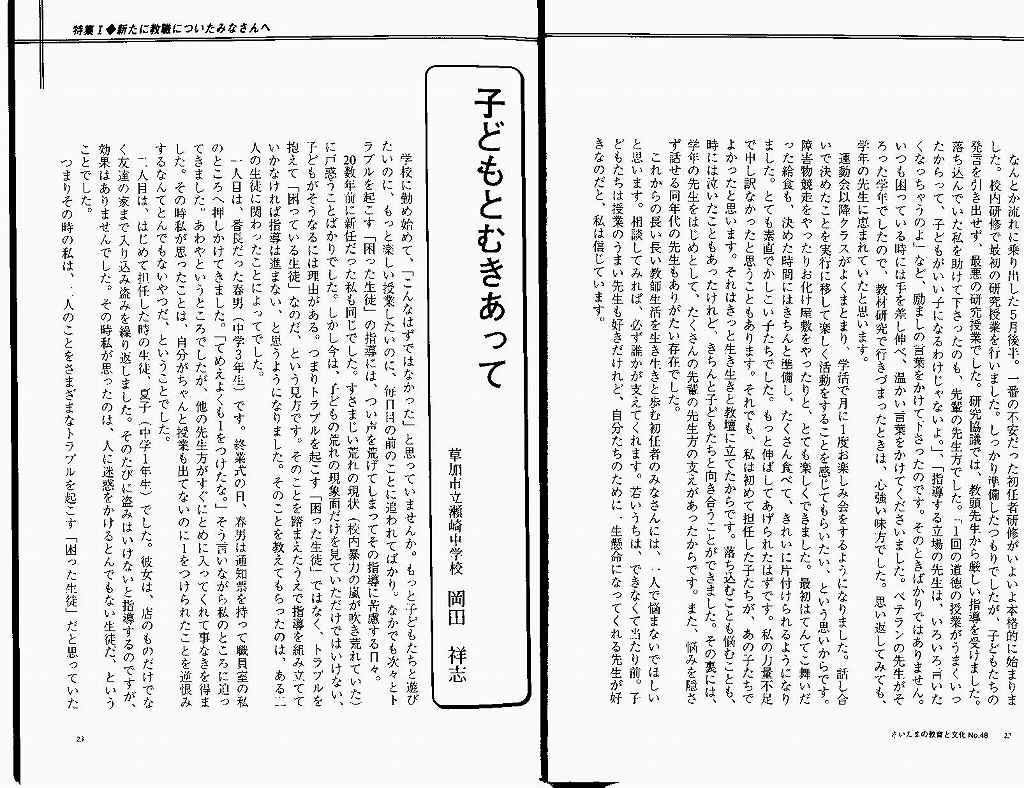 なんとか流れに乗り出した５月後半。一番の不安だった初任者研修がいよいよ本格的に始まりま
した。校内研修で最初の研究授業を行いました。しっかり準備したつもりでしたが、子どもたちの
発言を引き出せず、最悪の研究授業でした。研究協議では、教頭先生から厳しい指導を受けました。
落ち込んでいた私を助けて下さったのも、先輩の先生方でした。「１回の道徳の授業がうまくいっ
たからって、子どもがいい子になるわけじゃないよ。」、「指導する立場の先生は、いろいろ言いた
くなっちゃうのよ」など、励ましの言葉をかけて下さったのです。そのときばかりではありません。
いつも困っている時には手を差し伸べ、温かい言葉をかけてくださいました。ベテランの先生がそ
ろった学年でしたので、教材研究で行きづまったときは、心強い味方でした。思い返してみても、
学年の先生に恵まれていたと思います。
運動会以降クラスがよくまとまり、学活で月に１度お楽しみ会をするようになりました。話し合
いで決めたことを実行に移して楽しく活動をすることを感じてもらいたい、という思いからです。
障害物競走をやったりお化け屋敷をやったりと、とても楽しくできました。最初はてんてこ舞いだ
った給食も、決めた時間にはきちんと準備し、たくさん食べて、きれいに片付けられるようになり
ました。とても素直でかしこい子たちでした。もっと伸ばしてあげられたはずです。私の力量不足
で申し訳なかったと思うこともあります。それでも、私は初めて担任した子たちが、あの子たちで
よかったと思います。それはきっと生き生きと教壇に立てたからです。落ち込むことも悩むことも、
時には泣いたこともあったけれど、きちんと子どもたちと向き合うことができました。その裏には、
学年の先生をはじめとして、たくさんの先輩の先生方の支えがあったからです。また、悩みを隠さ
ず話せる同年代の先生もありがたい存在でした。
これからの長い長い教師生活を生き生きと歩む初任者のみなさんには、一人で悩まないでほしい
と思います。相談してみれば、必ず誰かが支えてくれます。若いうちは、できなくて当たり前。子
どもたちは授業のうまい先生も好きだけれど、自分たちのために一生懸命になってくれる先生が好
きなのだと、私は信じています。
さいたまの教育と文化 No.48 22
特集Ⅰ◆新たに教職についたみなさんへ
子どもとむきあって
草加市立瀬崎中学校 岡田 祥志
学校に勤め始めて、「こんなはずではなかった」と思っていませんか。もっと子どもたちと遊び
たいのに、もっと楽しい授業したいのに、毎日目の前のことに追われてばかり。なかでも次々とト
ラブルを起こす「困った生徒」の指導には、つい声を荒げてしまってその指導に苦慮する日々。
20数年前に新任だった私も同じでした。すさまじい荒れの現状（校内暴力の嵐が吹き荒れていた）
に戸惑うことばかりでした。しかし今は、子どもの荒れの現象面だけを見ていただけではいけない、
子どもがそうなるには理由がある。つまりトラブルを起こす「困った生徒」ではなく、トラブルを
抱えて「困っている生徒」なのだ、という見方です。そのことを踏まえたうえで指導を組み立てて
いかなければ指導は進まない、と思うようになりました。そのことを教えてもらったのは、ある二
人の生徒に関わったことによってでした。
一人目は、番長だった春男（中学３年生）です。終業式の日、春男は通知票を持って職員室の私
のところへ押しかけてきました。「てめえよくも１をつけたな。」そう言いながら私のところに迫っ
てきました。あわやというところでしたが、他の先生方がすぐにとめに入ってくれて事なきを得ま
した。その時私が思ったことは、自分がちゃんと授業も出てないのに１をつけられたことを逆恨み
するなんてとんでもないやつだ、ということでした。
二人目は、はじめて担任した時の生徒、夏子（中学１年生）でした。彼女は、店のものだけでな
く友達の家まで入り込み盗みを繰り返しました。そのたびに盗みはいけないと指導するのですが、
効果はありませんでした。その時私が思ったのは、人に迷惑をかけるとんでもない生徒だ、という
ことでした。
つまりその時の私は、二人のことをさまざまなトラブルを起こす「困った生徒」だと思っていた
23